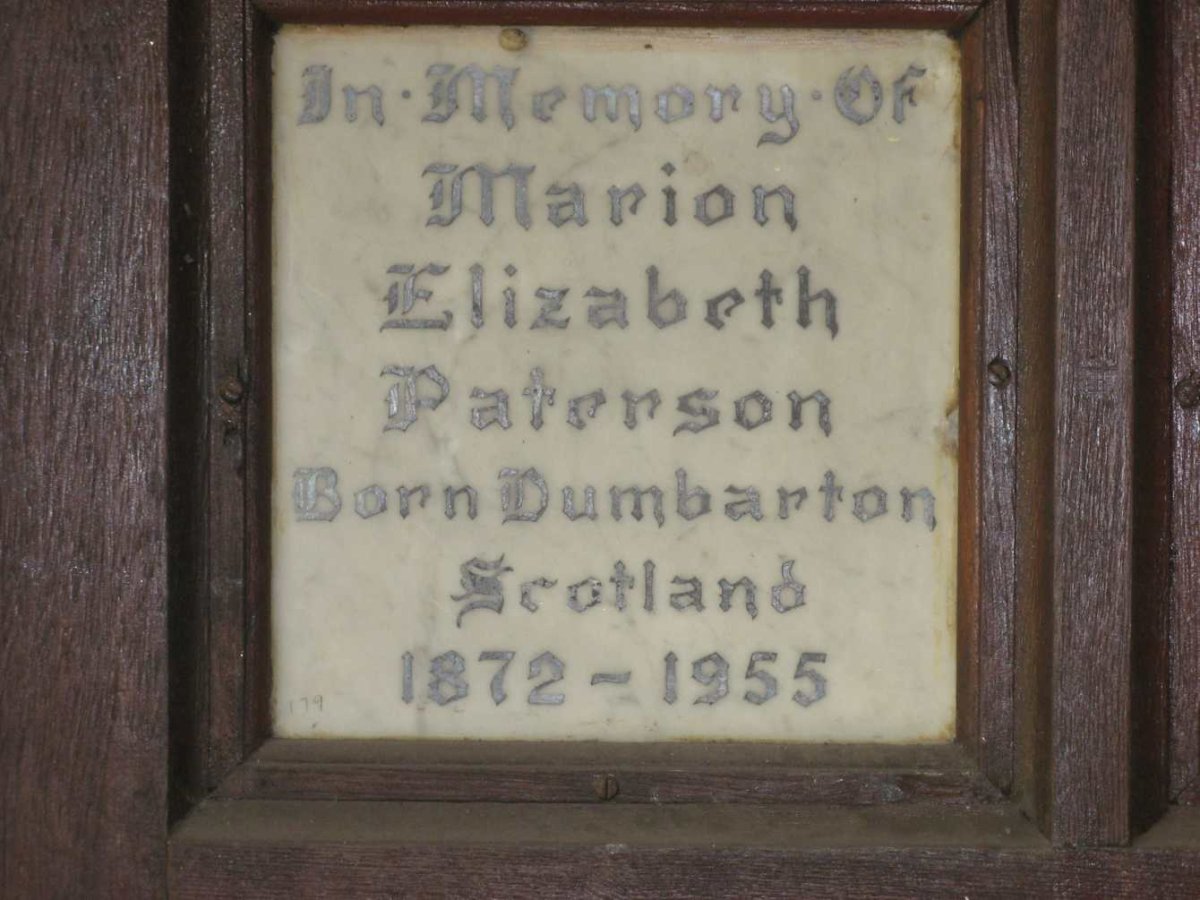 In · Memory · Of
Marion
Elizabeth
Paterson
Born Dumbarton
Scotland
1872 - 1955
179